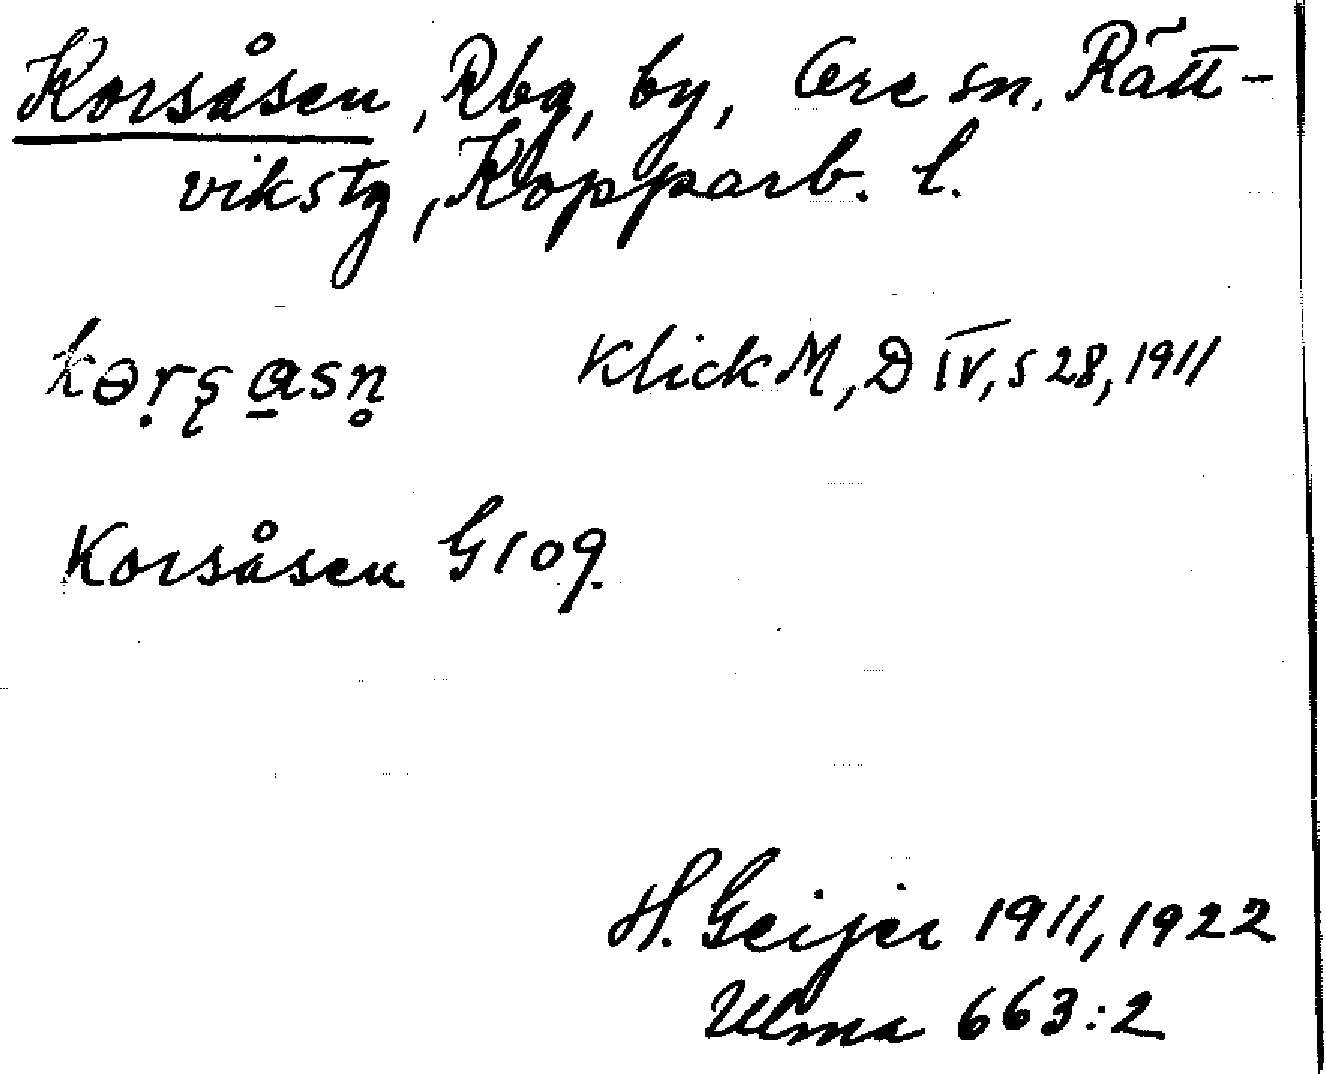 Korsåsen, Rbg, by, Ore sn. Rätt-
vikstg, Kopparb. l.
kɵṛş a̲sn̥ Klick M, D IV, s 28, 1911
Korsåsen G 109.
H. Geijer 1911, 1922
Ulma 663:2